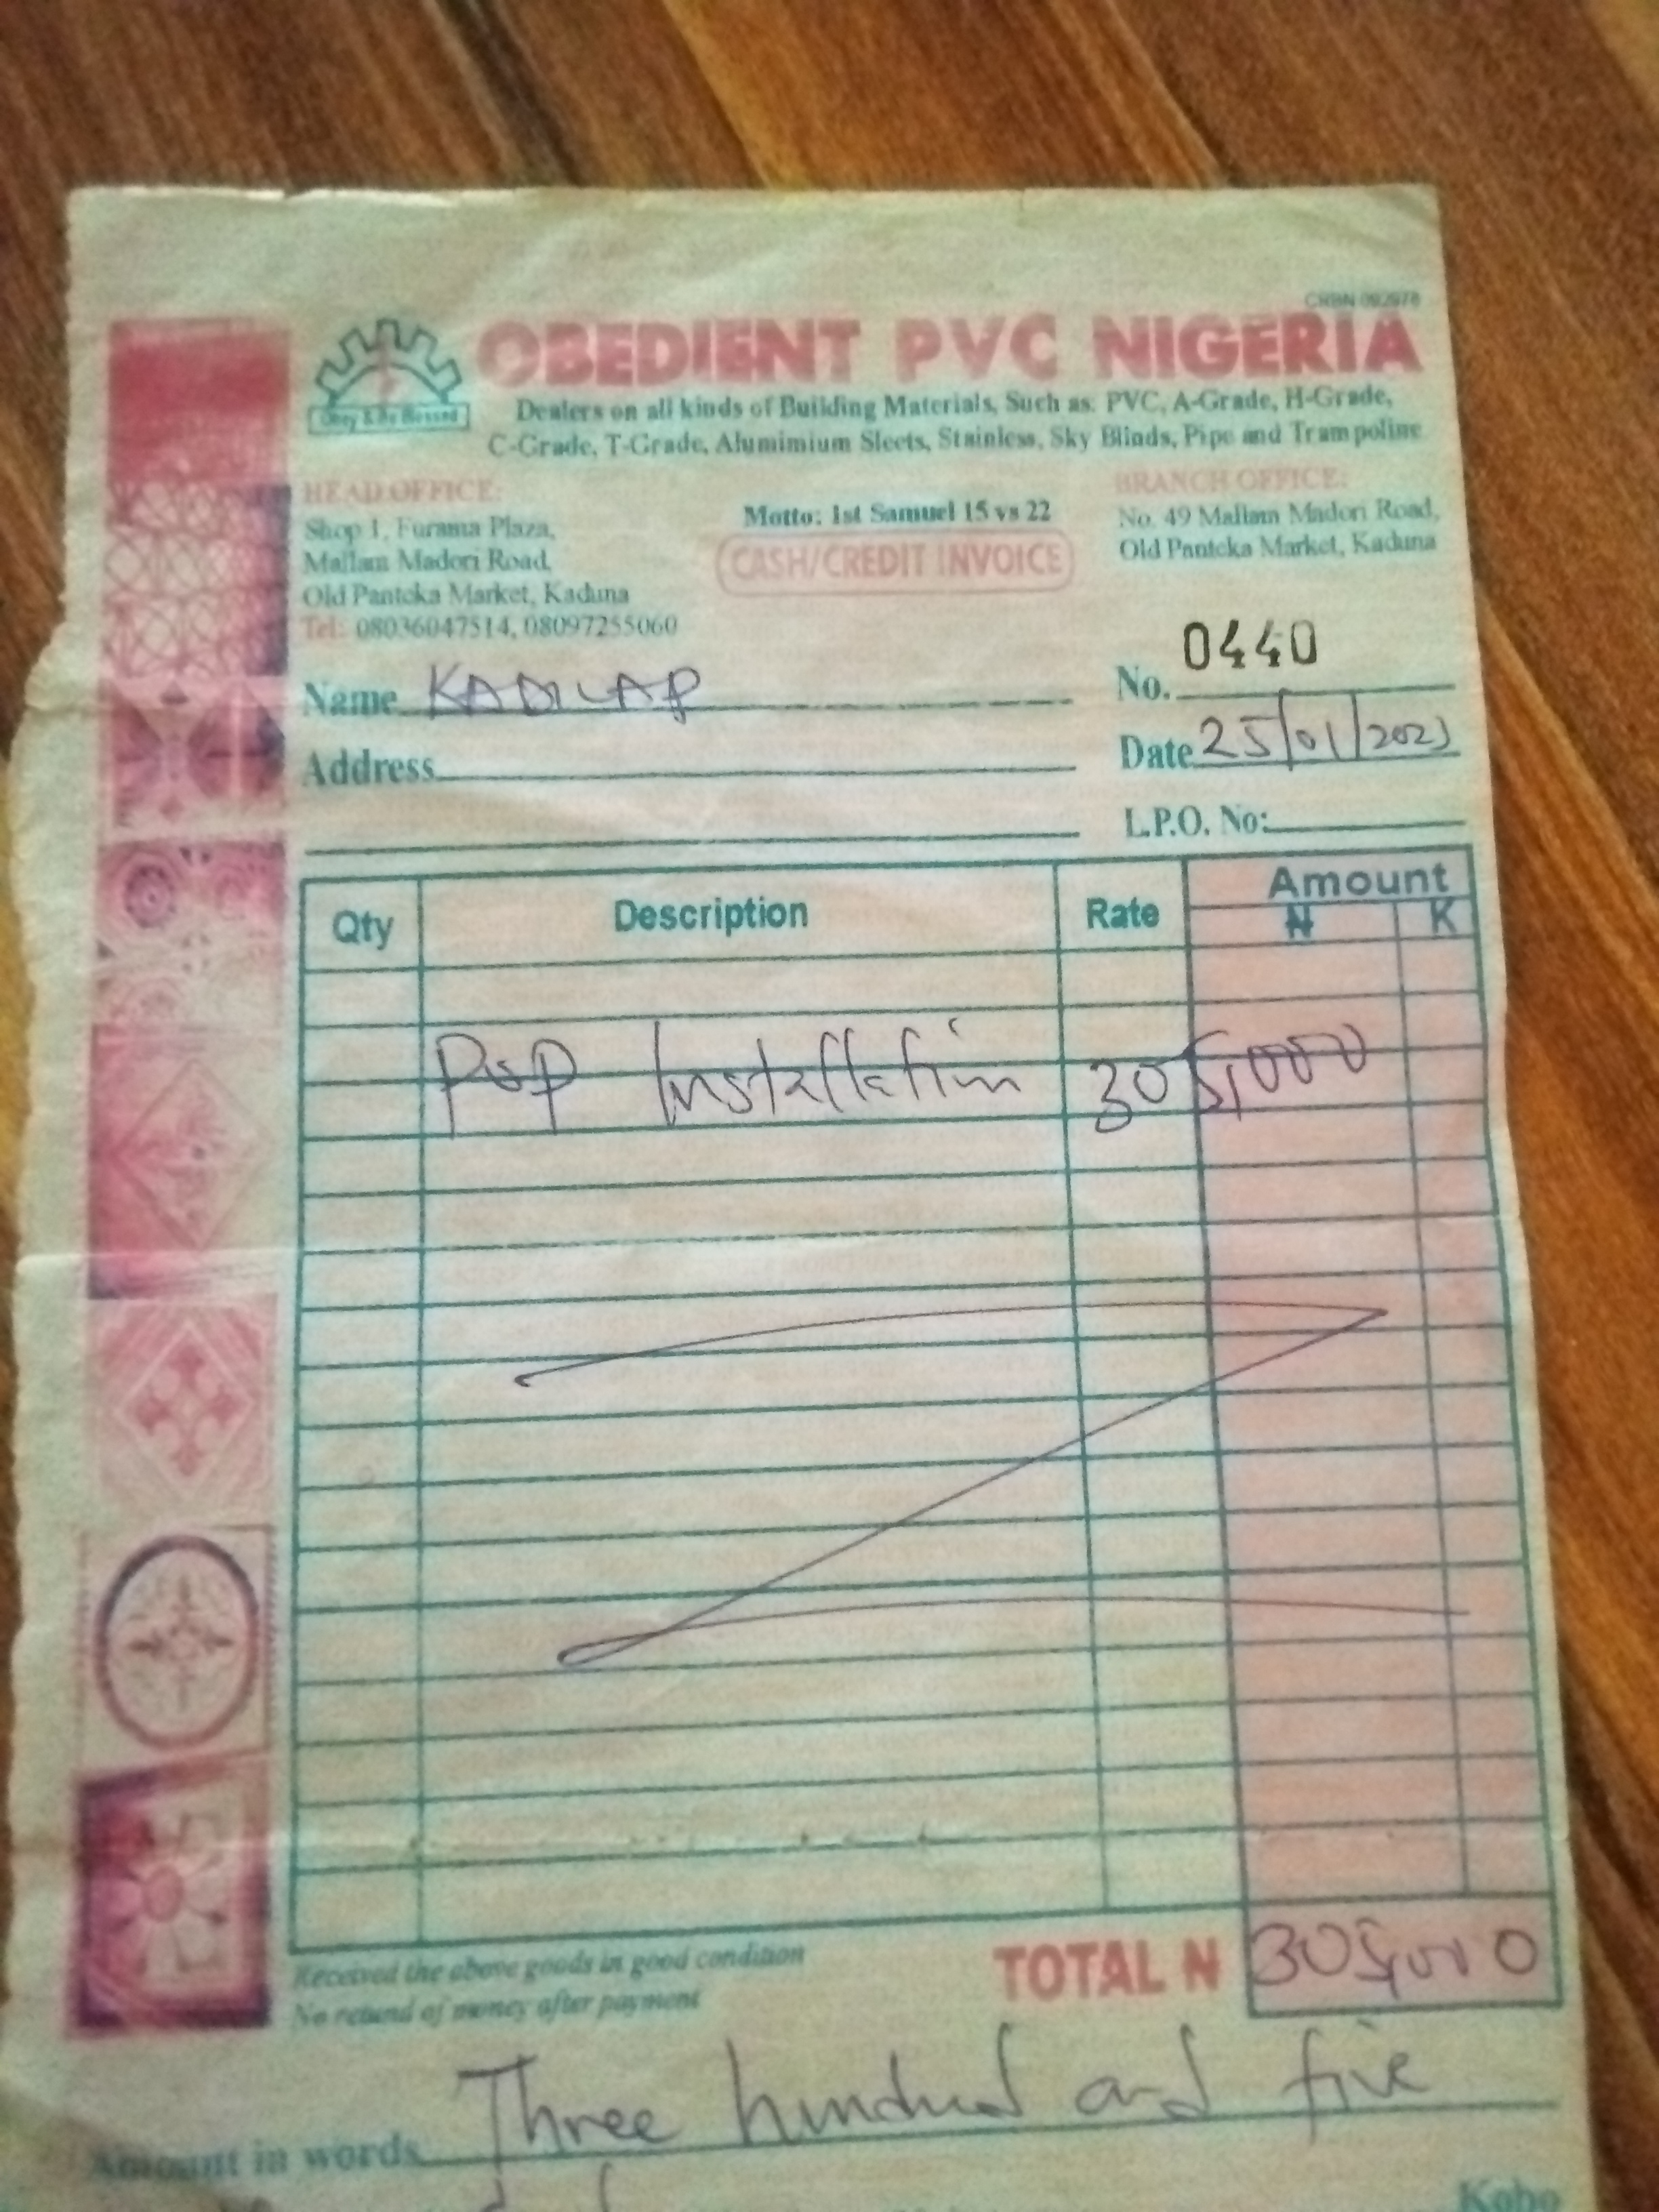 CRBN 092978
OBEDIENT PVC NIGERIA
Obey & Be Blessed
Dealers on all kinds of Building Materials, Such as: PVC, A-Grade, H-Grade,
C-Grade, T-Grade, Alumimium Sleets, Stainless, Sky Blinds, Pipe and Trampoline
HEAD OFFICE:
Shop 1, Furama Plaza,
Mallam Madori Road,
Old Panteka Market, Kaduna
Tel: 08036047514, 08097255060
Motto: 1st Samuel 15 vs 22
CASH/CREDIT INVOICE
BRANCH OFFICE:
No. 49 Mallam Madori Road,
Old Panteka Market, Kaduna
Name KADILAP
No. 0440
Address
Date 25/01/2023
L.P.O. No:
Qty Description Rate Amount
₦ K
PoP Installation 305,000
Received the above goods in good condition
No refund of money after payment
TOTAL ₦ 305,000
Amount in words Three hundred and five
Kobo